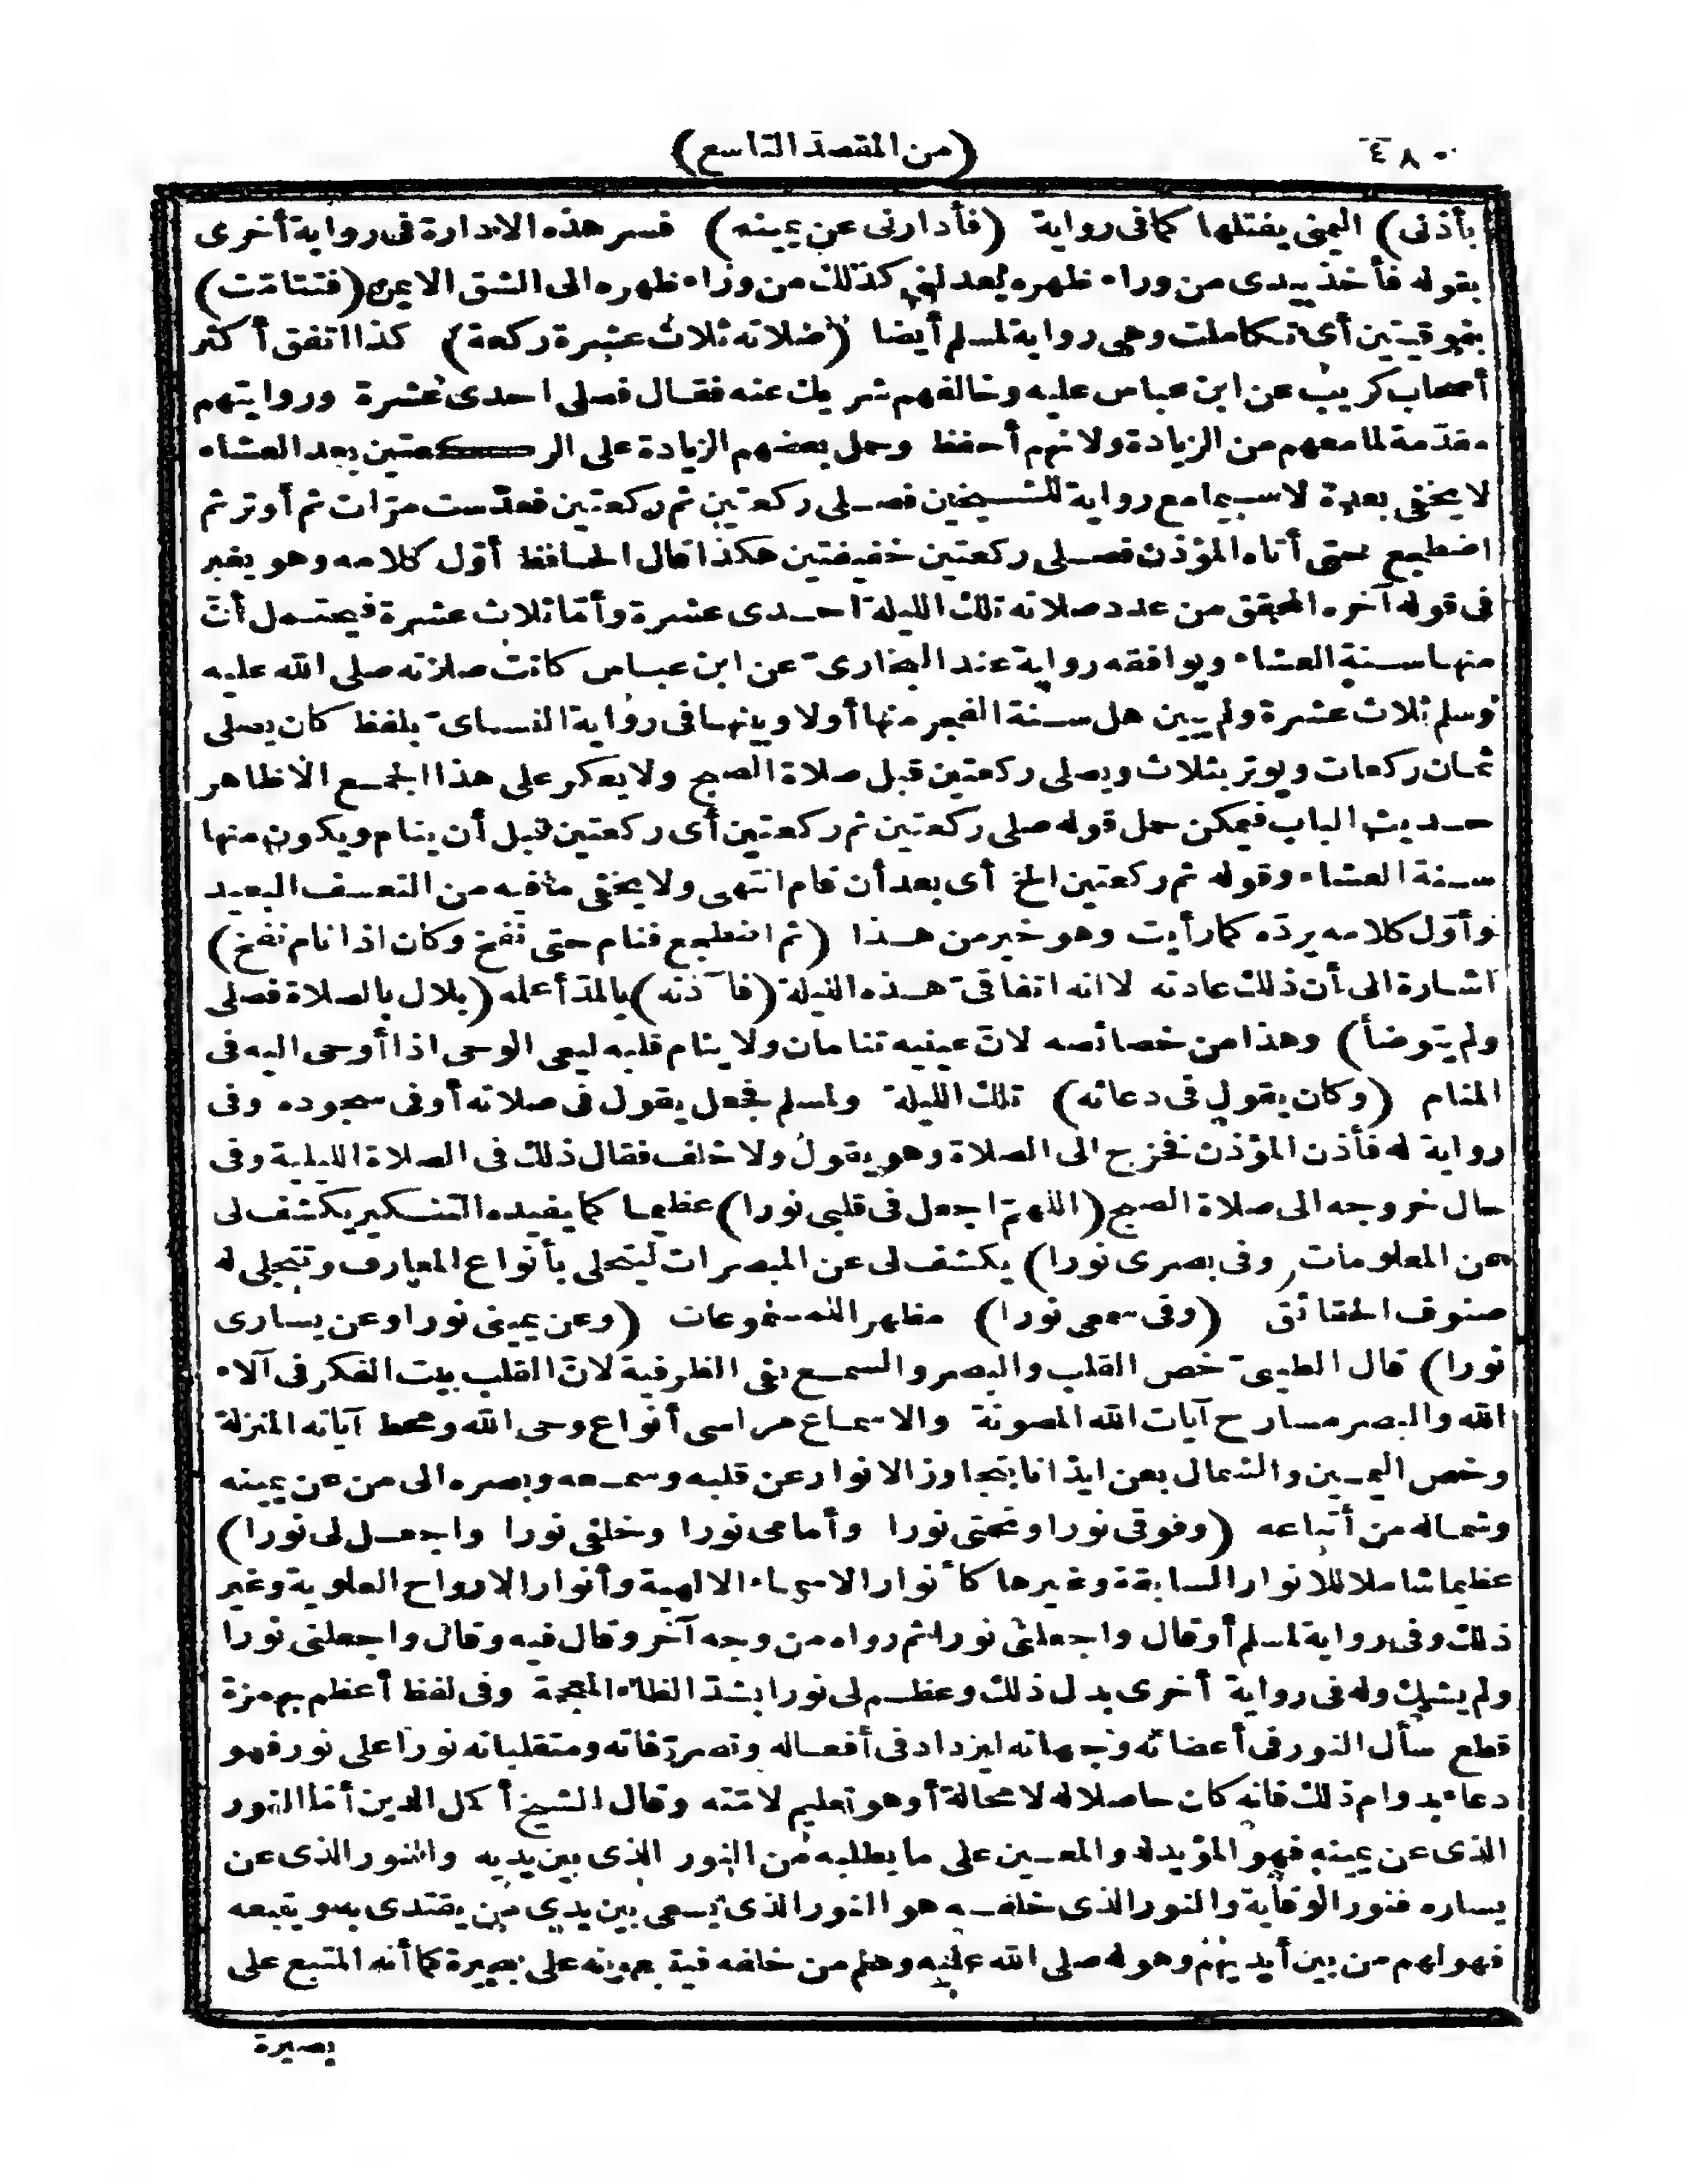 ٤٨٠
(من المقصد التاسع)
بأذنى) اليمنى يفتلها كما فى رواية (فأدارنى عن يمينه) فسر هذه الادارة فى رواية أخرى
بقوله فأخذ بيدى من وراء ظهره يعدلنى كذلك من وراء ظهره الى الشق الايمن (فتتامّت)
بفوقيتين أى تكاملت وهى رواية لمسلم أيضا (صلاته ثلاث عشرة ركعة) كذا اتفق أكثر
أصحاب كريب عن ابن عباس عليه وخالفهم شريك عنه فقال فصلى احدى عشرة وروايتهم
مقدّمة لما معهم من الزيادة ولانهم أحفظ وحمل بعضهم الزيادة على الركعتين بعد العشاء
لا يخفى بعده لا سيما مع رواية للشيخين فصلى ركعتين ثم ركعتين فعدّ ست مرّات ثم أوتر ثم
اضطجع حتى أتاه المؤذن فصلى ركعتين خفيفتين هكذا قال الحافظ أوّل كلامه وهو يغبر
فى قوله آخره المحقق من عدد صلاته تلك الليلة احدى عشرة وأمّا ثلاث عشرة فيحتمل أنّ
منها سنة العشاء ويوافقه رواية عند البخارىّ عن ابن عباس كانت صلاته صلى الله عليه
وسلم ثلاث عشرة ولم يبين هل سنة الفجر منها أولا وبينها فى رواية النساىّ بلفظ كان يصلى
ثمان ركعات ويوتر بثلاث ويصلى ركعتين قبل صلاة الصبح ولا يعكر على هذا الجمع الا ظاهر
حديث الباب فيمكن حمل قوله صلى ركعتين ثم ركعتين أى ركعتين قبل أن ينام ويكون منها
سنة العشاء وقوله ثم ركعتين الخ أى بعد أن قام انتهى ولا يخفى ما فيه من التعسف البعيد
وأوّل كلامه يردّه كما رأيت وهو خير من هذا (ثم اضطجع فنام حتى نفخ وكان اذا نام نفخ)
اشارة الى أن ذلك عادته لا انه اتفاقىّ هذه الليلة (فآذنه) بالمدّ أعلمه (بلال بالصلاة فصلى
ولم يتوضأ) وهذا من خصائصه لانّ عينيه تنامان ولا ينام قلبه ليعى الوحى اذا أوحى اليه فى
المنام (وكان يقول فى دعائه) تلك الليلة ولمسلم فجعل يقول فى صلاته أو فى سجوده وفى
رواية له فأذن المؤذن فخرج الى الصلاة وهو يقول ولا خلف فقال ذلك فى الصلاة الليلية وفى
حال خروجه الى صلاة الصبح (اللهمّ اجعل فى قلبى نورا) عظيما كما يفيده التنكير يكشف لى
عن المعلومات (وفى بصرى نورا) يكشف لى عن المبصرات ليتحلى بأنواع المعارف وتتجلى له
صنوف الحقائق (وفى سمعى نورا) مظهر المسموعات (وعن يمينى نورا وعن يسارى
نورا) قال الطيبىّ خص القلب والبصر والسمع بفى الظرفية لانّ القلب بيت الفكر فى آلاء
الله والبصر مسارح آيات الله المصونة والاسماع مراسى أنواع وحى الله ومحط آياته المنزلة
وخص اليمين والشمال بعن ايذانا بتجاوز الانوار عن قلبه وسمعه وبصره الى من عن يمينه
وشماله من أتباعه (وفوقى نورا وتحتى نورا وأمامى نورا وخلفى نورا واجعل لى نورا)
عظيما شاملا للانوار السابقة وغيرها كأنوار الاسماء الالهية وأنوار الارواح العلوية وغير
ذلك وفى رواية لمسلم أو قال واجعلنى نورا ثم رواه من وجه آخر وقال فيه وقال واجعلنى نورا
ولم يشك وله فى رواية أخرى بدل ذلك وعظم لى نورا بشدّ الظاء المعجمة وفى لفظ أعظم بهمزة
قطع سأل النور فى أعضائه وجهاته ليزداد فى أفعاله وتصرّفاته ومتقلباته نورا على نور فهو
دعاء بدوام ذلك فانه كان حاصلا له لا محالة أو هو تعليم لامّته وقال الشيخ أكمل الدين أمّا النور
الذى عن يمينه فهو المؤيد له والمعين على ما يطلبه من النور الذى بين يديه والنور الذى عن
يساره فنور الوقاية والنور الذى خلفه هو النور الذى يسعى بين يدى من يقتدى به ويتبعه
فهو لهم من بين أيديهم وهو له صلى الله عليه وسلم من خلفه فيتبعونه على بصيرة كما أنه المتبع على
بصيرة